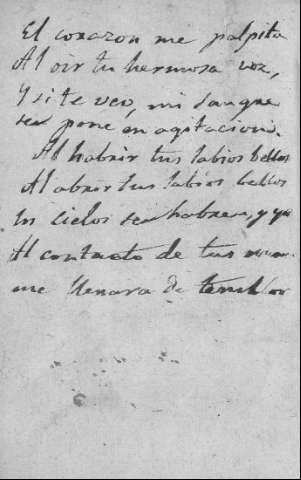 El corazon me palpita
Al oir tu hermosa voz,
Y si te veo, mi sangre
se pone en agitacion.
Al habrir tus labios bellos
Al abrir tus labios bellos
los cielos se habren, y yo
Al contacto de tus
me llenara de temblor